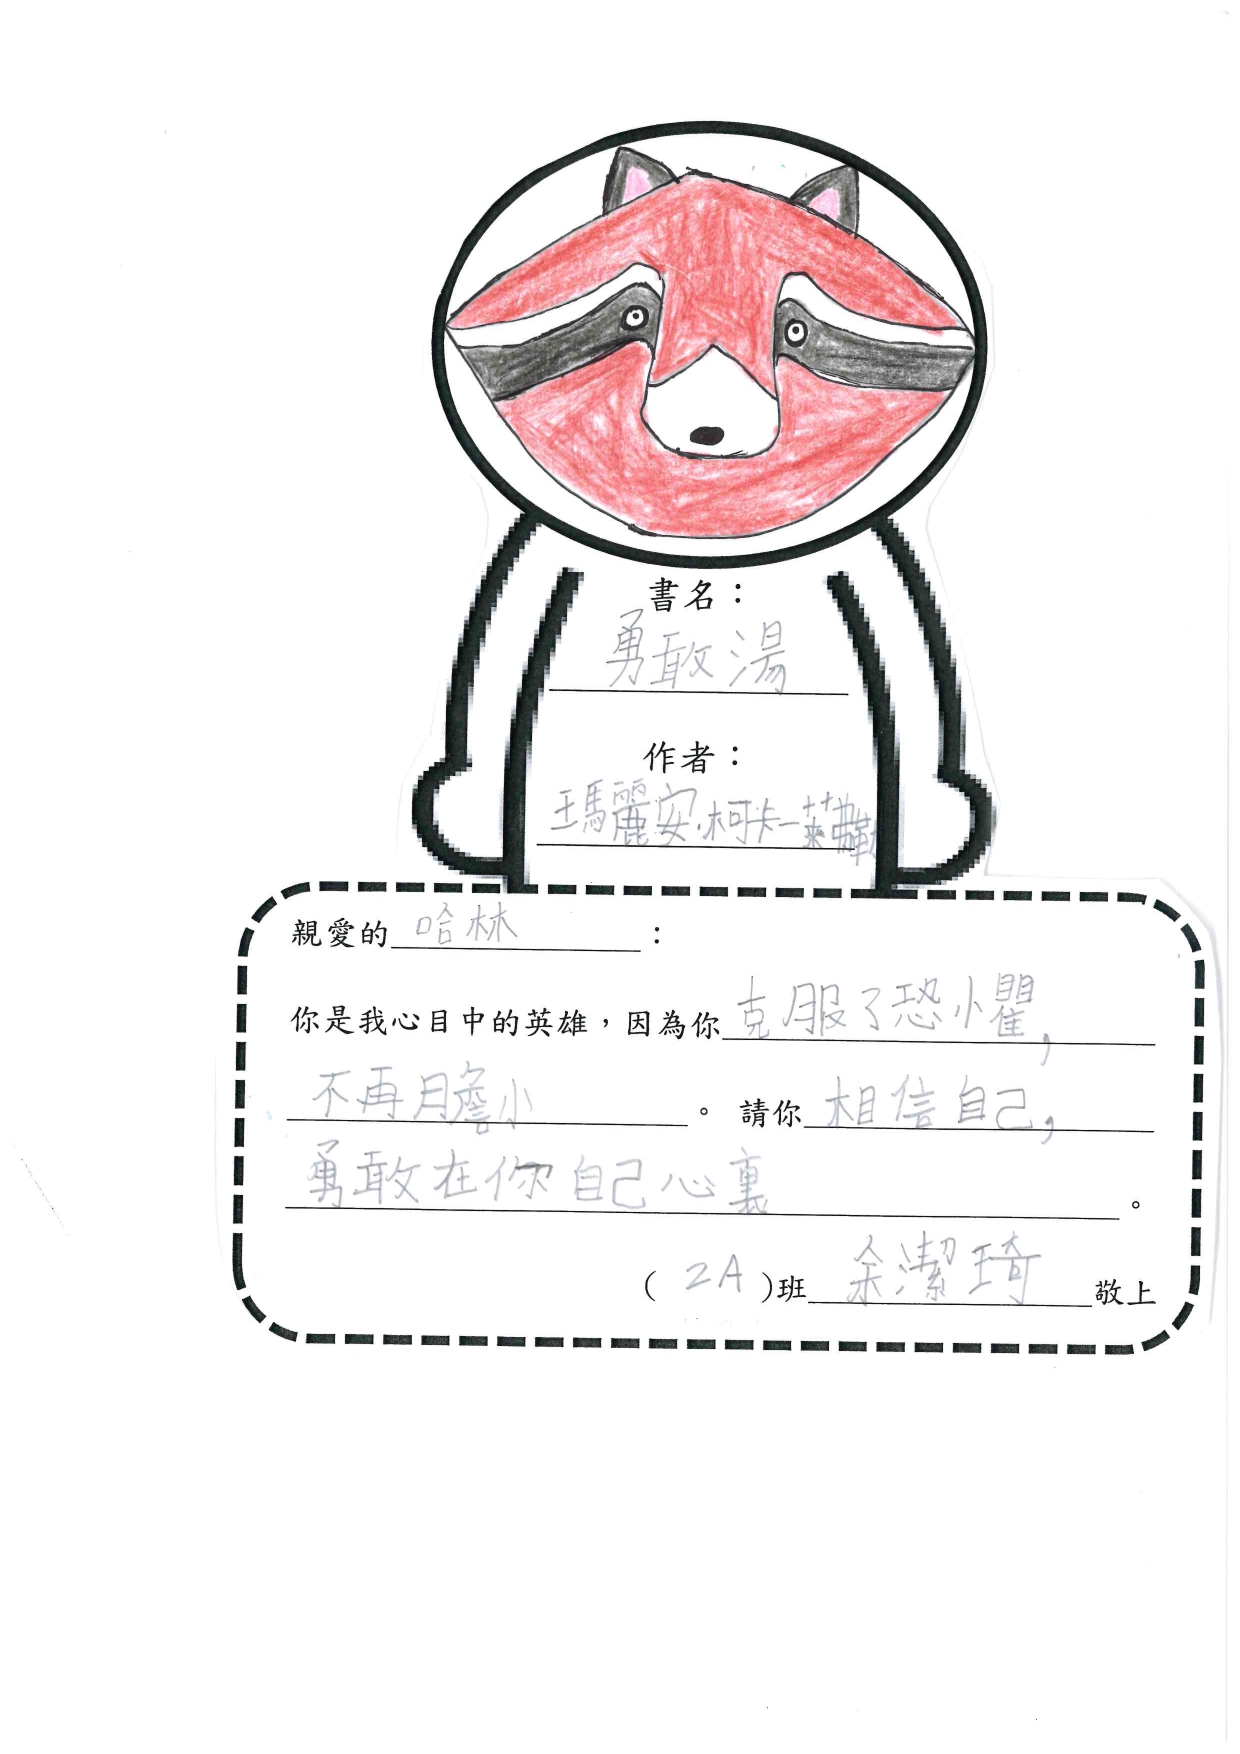 書名：
勇敢湯
作者：
瑪麗安．柯卡－萊弗勒
親愛的哈林：
你是我心目中的英雄，因為你克服了恐懼，
不再膽小。請你相信自己，
勇敢在你自己心裏。
(2A)班余潔琦敬上